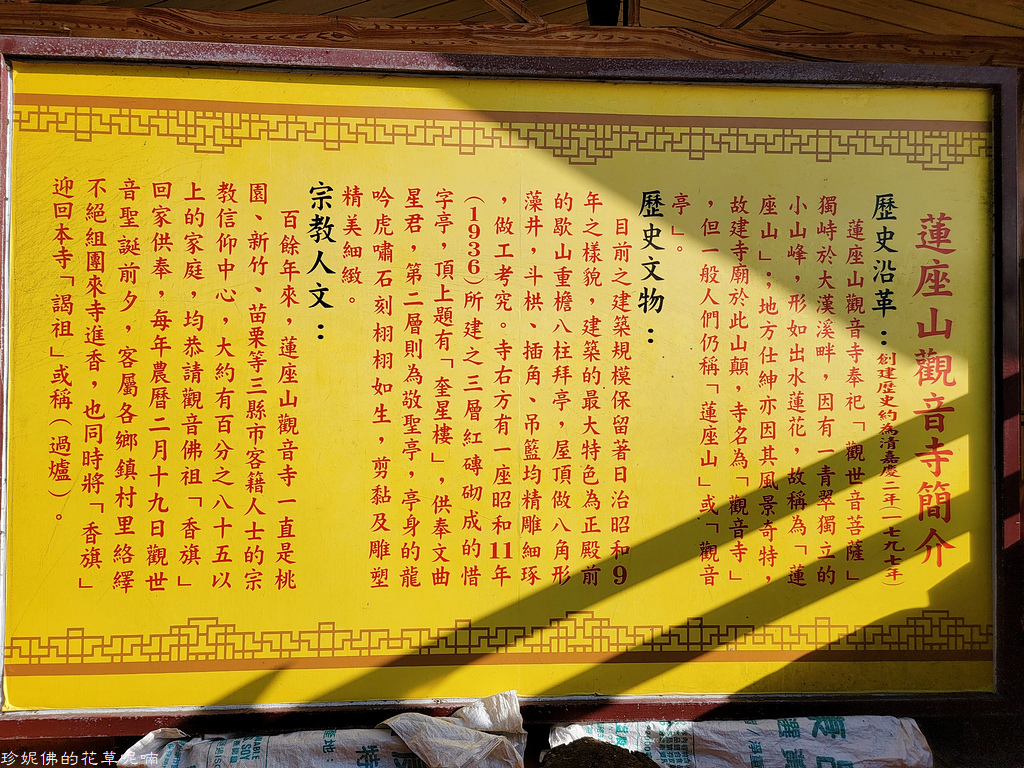 蓮座山觀音寺簡介
歷史沿革：創建歷史約為清嘉慶二年（一七九七年）
蓮座山觀音寺奉祀「觀世音菩薩」
獨峙於大漢溪畔，因有一青翠獨立的
小山峰，形如出水蓮花，故稱為「蓮
座山」；地方仕紳亦因其風景奇特，
故建寺廟於此山顛，寺名為「觀音寺」
，但一般人們仍稱「蓮座山」或「觀音
亭」。
歷史文物：
目前之建築規模保留著日治昭和9
年之樣貌，建築的最大特色為正殿前
的歇山重檐八柱拜亭，屋頂做八角形
藻井，斗栱、插角、吊籃均精雕細琢
，做工考究。寺右方有一座昭和11年
（1936）所建之三層紅磚砌成的惜
字亭，頂上題有「奎星樓」，供奉文曲
星君，第二層則為敬聖亭，亭身的龍
吟虎嘯石刻栩栩如生，剪黏及雕塑
精美細緻。
宗教人文：
百餘年來，蓮座山觀音寺一直是桃
園、新竹、苗栗等三縣市客籍人士的宗
教信仰中心，大約有百分之八十五以
上的家庭，均恭請觀音佛祖「香旗」
回家供奉，每年農曆二月十九日觀世
音聖誕前夕，客屬各鄉鎮村里絡繹
不絕組團來寺進香，也同時將「香旗」
迎回本寺「謁祖」或稱（過爐）。
珍妮佛的花草呢喃